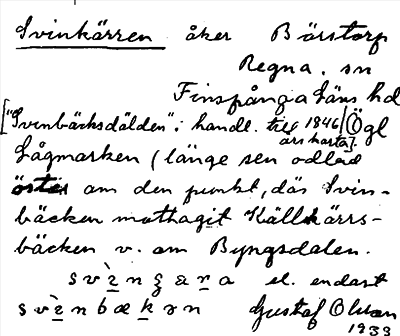 Svinkärren åker Bärstorp
Regna. sn
Finspånga läns hd
["Svinbäcksdälden" i handl. till 1846 Ögl
års karta].
Lågmarken (länge sen odlad
öster om den punkt, där Svin-
bäcken mottagit Källkärrs-
bäcken v. om Byngsdalen.
el. endast
Gustaf Olsson
1933